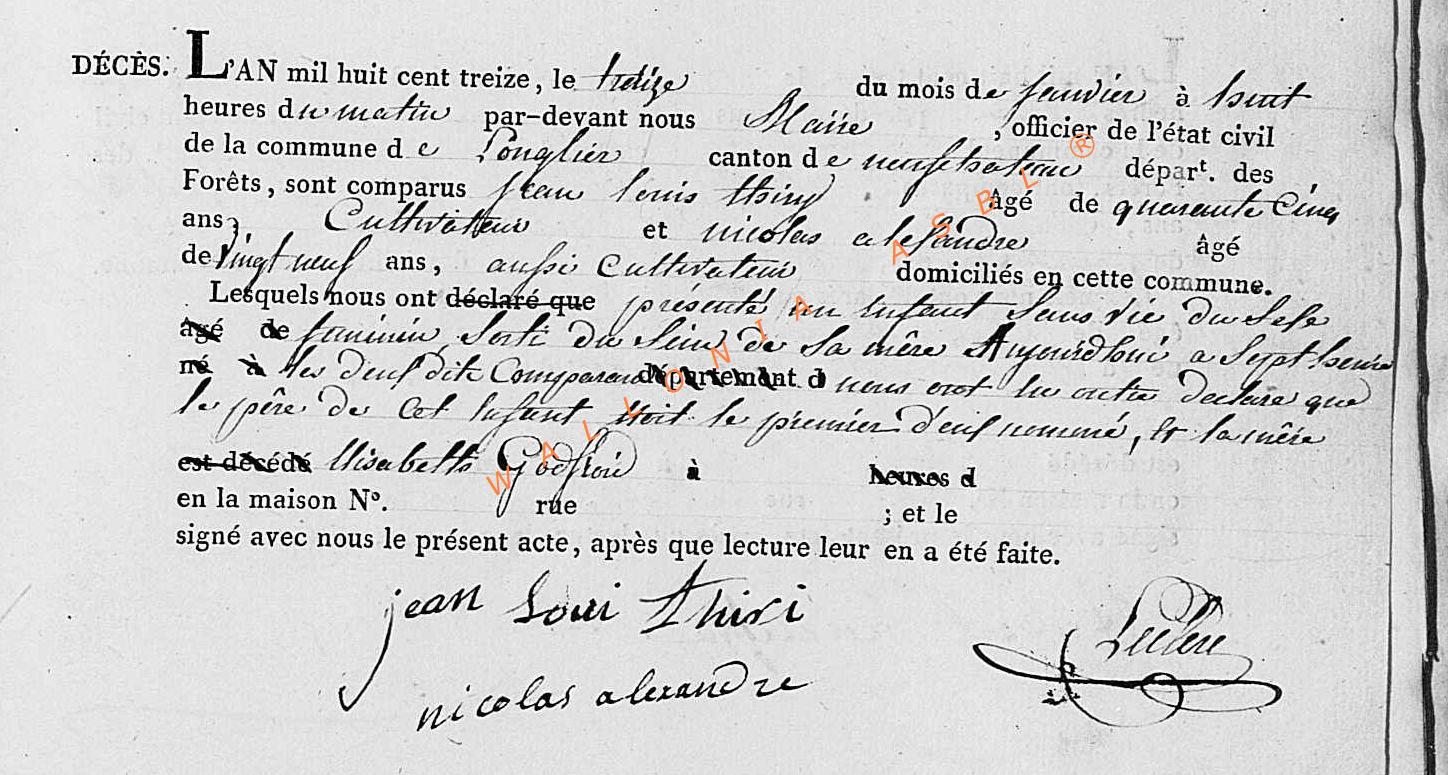 DÉCÈS. L'AN mil huit cent treize, le treize du mois de janvier à huit
heures du matin par-devant nous Maire , officier de l'état civil
de la commune de Longlier canton de neufchateau départ. des
Forêts, sont comparus jean louis thiry âgé de quarante Cinq
ans, Cultivateur et nicolas alesandre âgé
de Vingt neuf ans, aussi Cultivateur domiciliés en cette commune.
Lesquels nous ont déclaré que présenté un Enfant Sans vie du Sese
âgé de feminin Sorti du Sein de Sa mêre Aujourdhui a Sept heure
né à les deuf dits Comparans département d nous ont En outre declare que
le pêre de Cet Enfant étoit le premier d'euf nommé, Et la mêre
est décédé Elisabeth Godfroid à heures d
en la maison N°. rue ; et le
signé avec nous le présent acte, après que lecture leur en a été faite.
jean Loui thiri
Leclere
nicolas alexandre
WALLONIA ASBL ®